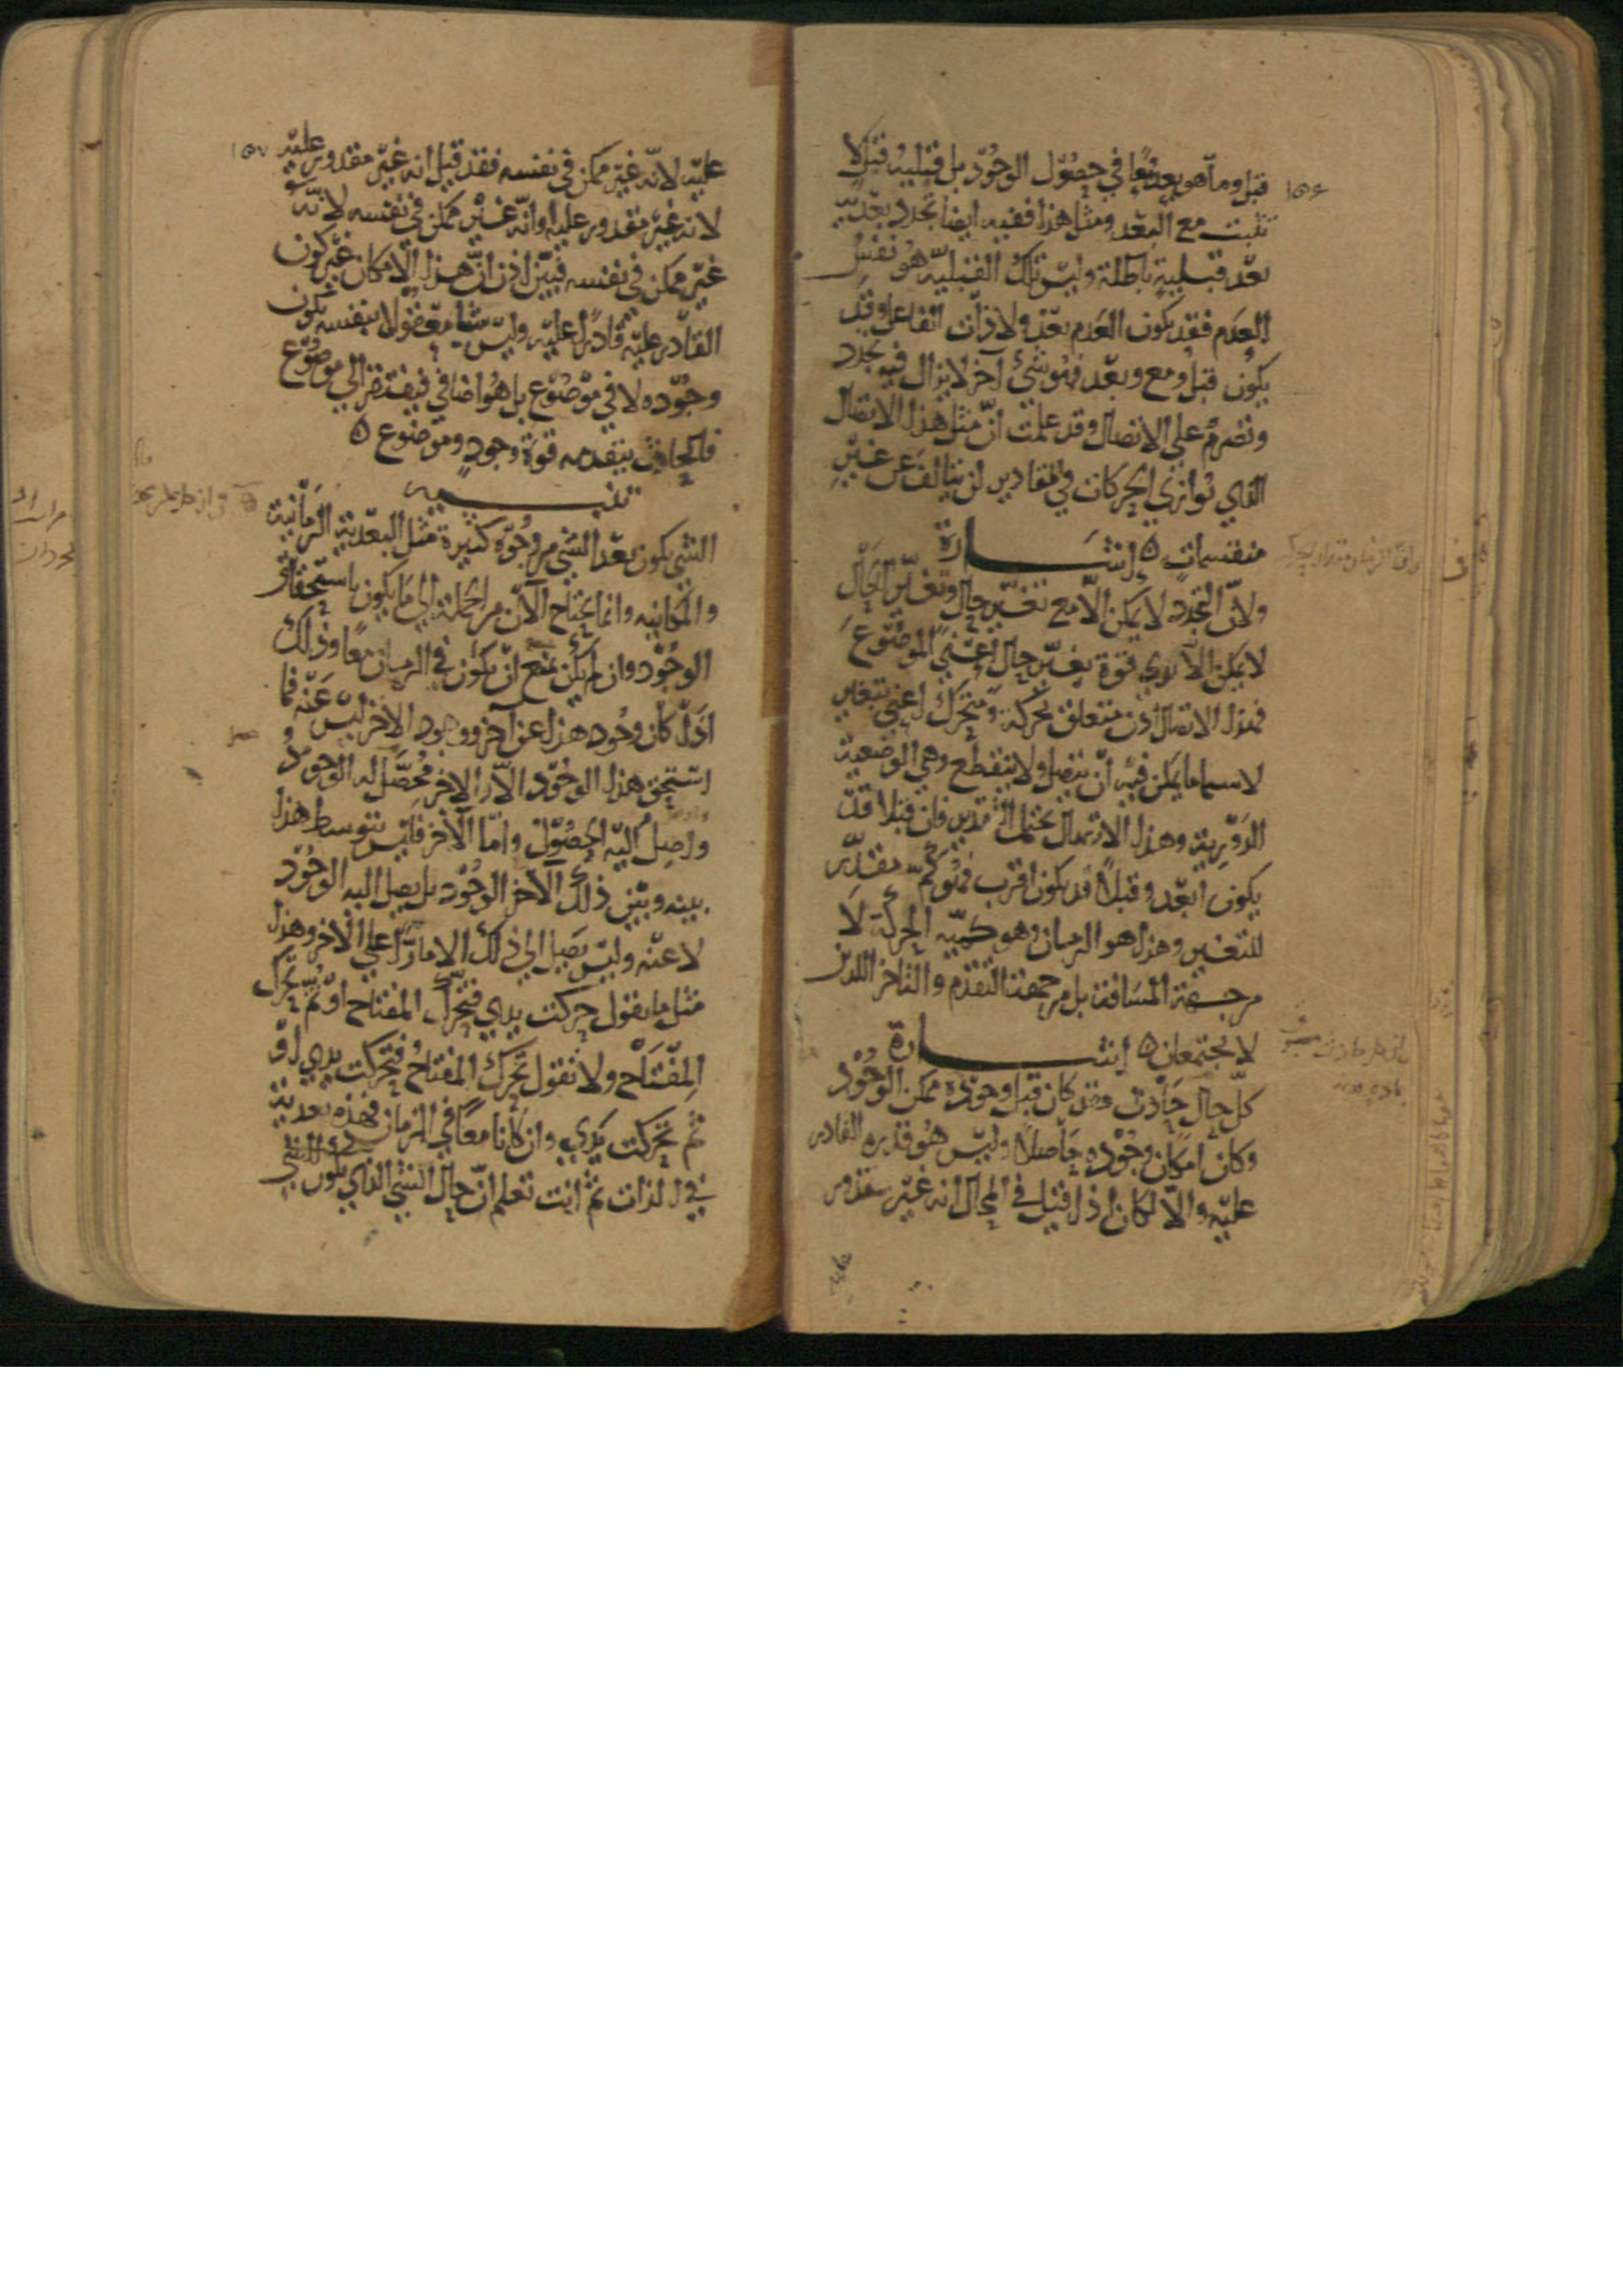 ١٥٦
قبل وما هو بعد معًا في حصول الوجود بل قبلية قبل لا
تثبت مع البعد ومثل هذا ففيه ايضا تجدد بعدية
بعد قبلية باطلة وليس تلك القبلية هو نفس
العدم فقد يكون العدم بعد ولا ذات الفاعل وقد
يكون قبل ومع وبعد فهو شيء آخر لا يزال فيه تجدد
وتصرم على الاتصال وقد علمت ان مثل هذا الاتصال
الذي يوازي الحركات في المقادير لن يتالف عن غير
منقسمات ٥ اشارة
ولان التجدد لا يمكن الا مع تغير حال وتغير الحال
لا يمكن الا لذي قوة تغير حال اعني الموضوع
فهذا الاتصال اذن متعلق بحركة ومتحرك اعني بتغير
لا سيما ما يمكن فيه ان يتصل ولا ينقطع وهي الوضعية
الدورية وهذا الاتصال يحتمل التقدير فان قبلا قد
يكون ابعد وقبلا قد يكون اقرب فهو كم مقدر
للتغير وهذا هو الزمان وهو كمية الحركة لا
من جهة المسافة بل من جهة التقدم والتاخر اللذين
لا يجتمعان ٥ اشارة
كل حال حادث فقد كان قبل وجوده ممكن الوجود
وكان امكان وجوده حاصلا وليس هو قدرة القادر
عليه والا لكان اذا قيل في المحال انه غير مقدور
١٥٧
عليه لانه غير ممكن في نفسه فقد قيل انه غير مقدور عليه
لانه غير مقدور عليه او انه غير ممكن في نفسه لانه
غير ممكن في نفسه فبين اذن ان هذا الامكان غير كون
القادر عليه قادرا عليه وليس شيا معقولا بنفسه يكون
وجوده لا في موضوع بل هو اضافي فيفتقر الى موضوع
فالحادث يتقدمه قوة وجود وموضوع ٥
تنبيه
الشي يكون بعد الشي من وجوه كثيرة مثل البعدية الزمانية
والمكانية وانما يحتاج الآن من الجملة الى ما يكون باستحقاق
الوجود وان لم يكن يمتنع ان يكون في الزمان معا وذلك
اذا كان وجود هذا عن آخر ووجود الآخر ليس عنه فما
استحق هذا الوجود الا والاخر محصل له الوجود
وصل اليه الحصول واما الآخر فليس يتوسط هذا
بينه وبين ذلك الآخر الوجود بل يصل اليه الوجود
لا عنه وليس يصل الى ذلك الا مارا على الآخر وهذا
مثل ما تقول حركت يدي فتحرك المفتاح او ثم تحرك
المفتاح ولا تقول تحرك المفتاح فتحركت يدي او
ثم تحركت يدي وان كانا معا في الزمان فهذه بعدية
في الذات ثم انت تعلم ان حال الشي الذي يكون للشي